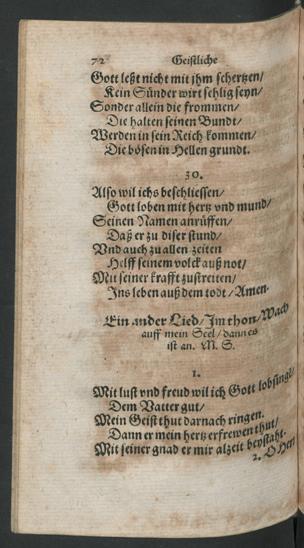 72 Geistliche
Gott leßt nicht mit jhm schertzen/
Kein Sünder wirt sehlig seyn/
Sonder allein die frommen/
Die halten seinen Bundt/
Werden in sein Reich kommen/
Die bösen in Hellen grundt.
30.
Also wil ichs beschliessen/
Gott loben mit hertz vnd mund/
Seinen Namen anrüffen/
Daß er zu diser stund/
Vnd auch zu allen zeiten
Helff seinem volck auß not/
Mit seiner krafft zustreiten/
Ins leben auß dem todt/Amen.
Ein ander Lied/Im thon/Wach
auff mein Seel/ dann es
ist an. M. S.
1.
Mit lust vnd freud wil ich Gott lobsingē/
Dem Vatter gut/
Mein Geist thut darnach ringen.
Dann er mein hertz erfrewen thut/
Mit seiner gnad er mir alzeit beystaht.
2. O Herr